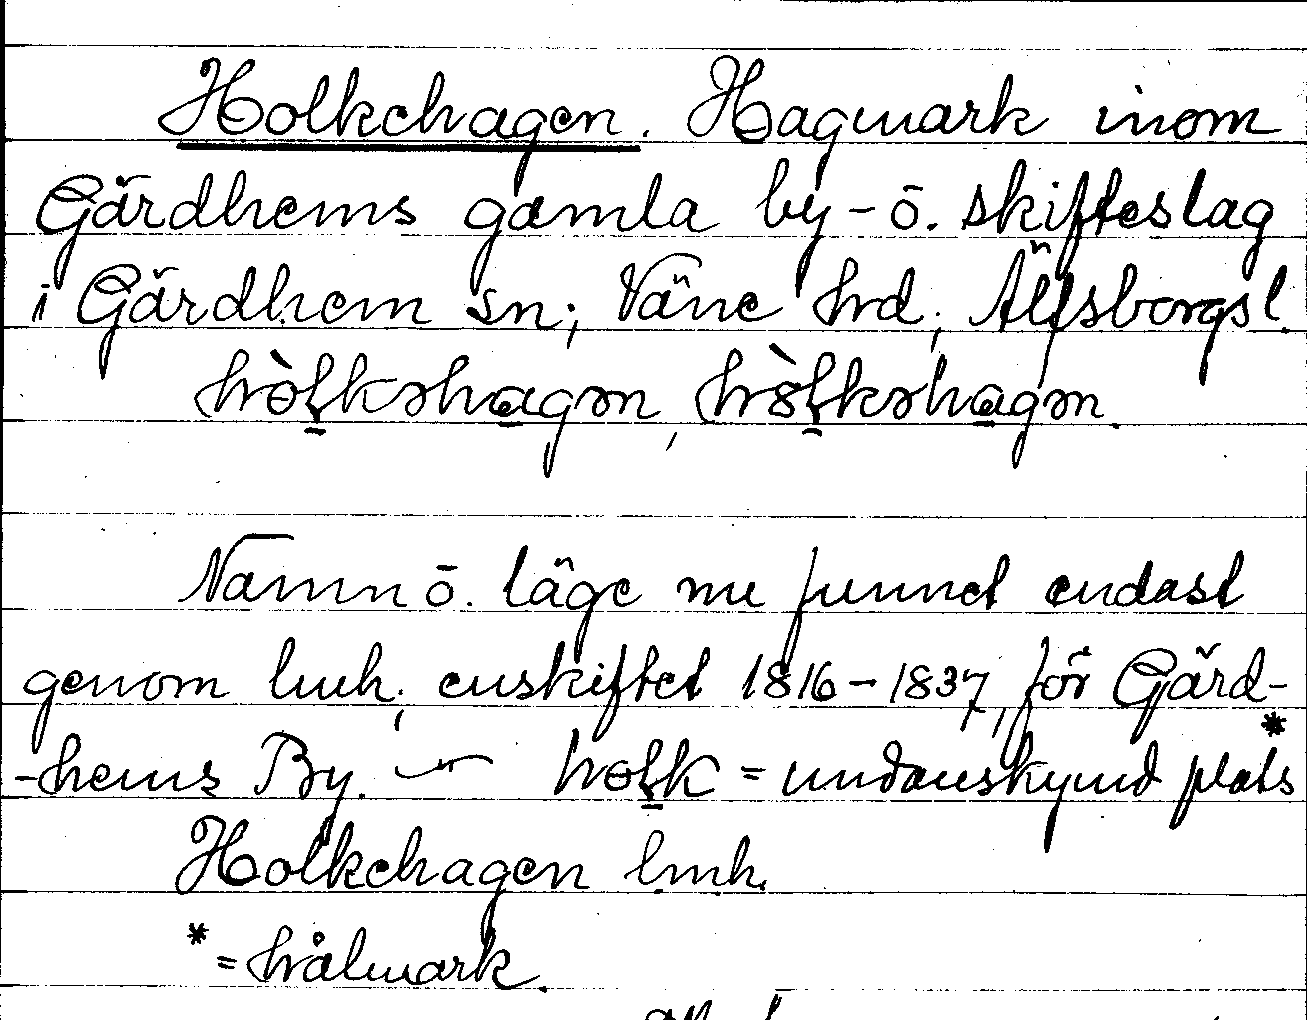 Holkehagen. Hagmark inom
Gärdhems gamla by - ō. skifteslag
i Gärdhem sn; Väne hrd; Älfsborgs l.
hòḷkəhagən, hòḷkəhagən.
Namn ō. läge nu funnet endast
genom lmh; enskiftet 1816-1837, för Gärd-
-hems By. — hoḷk = undanskymd plats*
Holkehagen lmh.
* = hålmark.